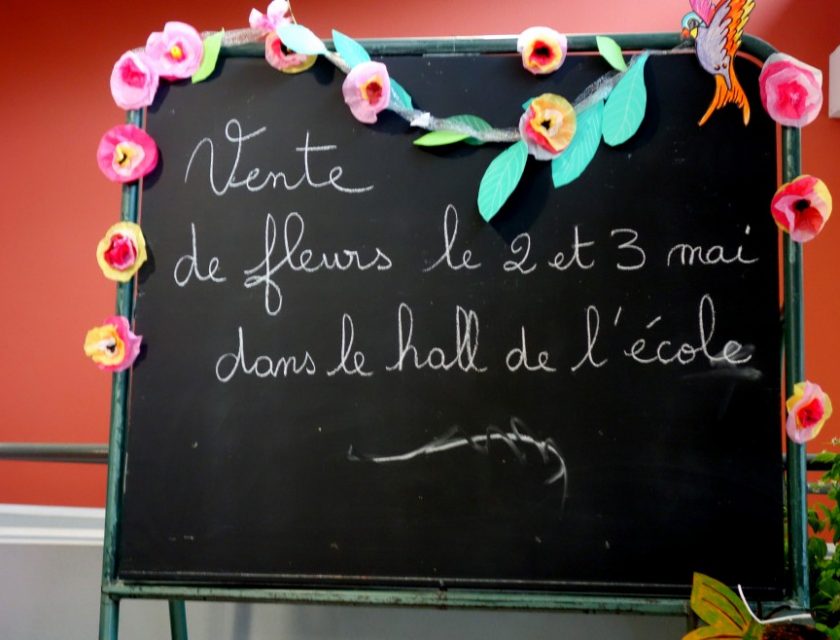 Vente
de fleurs le 2 et 3 mai
dans le hall de l'école